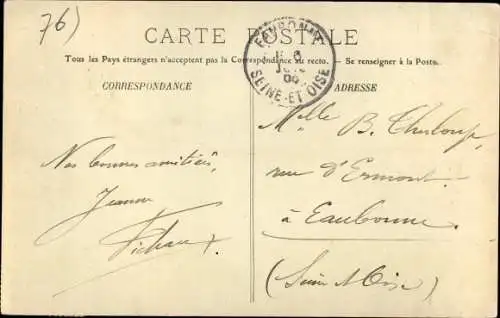 76)
CARTE POSTALE
Tous les Pays étrangers n'acceptent pas la Correspondance au recto. — Se renseigner à la Poste.
CORRESPONDANCE
ADRESSE
EAUBONNE
SEINE-ET-OISE
Mlle B.
rue d'Ermont
à Eaubonne.
(Seine & Oise)
Nos bonnes amitiés,
Jeanne